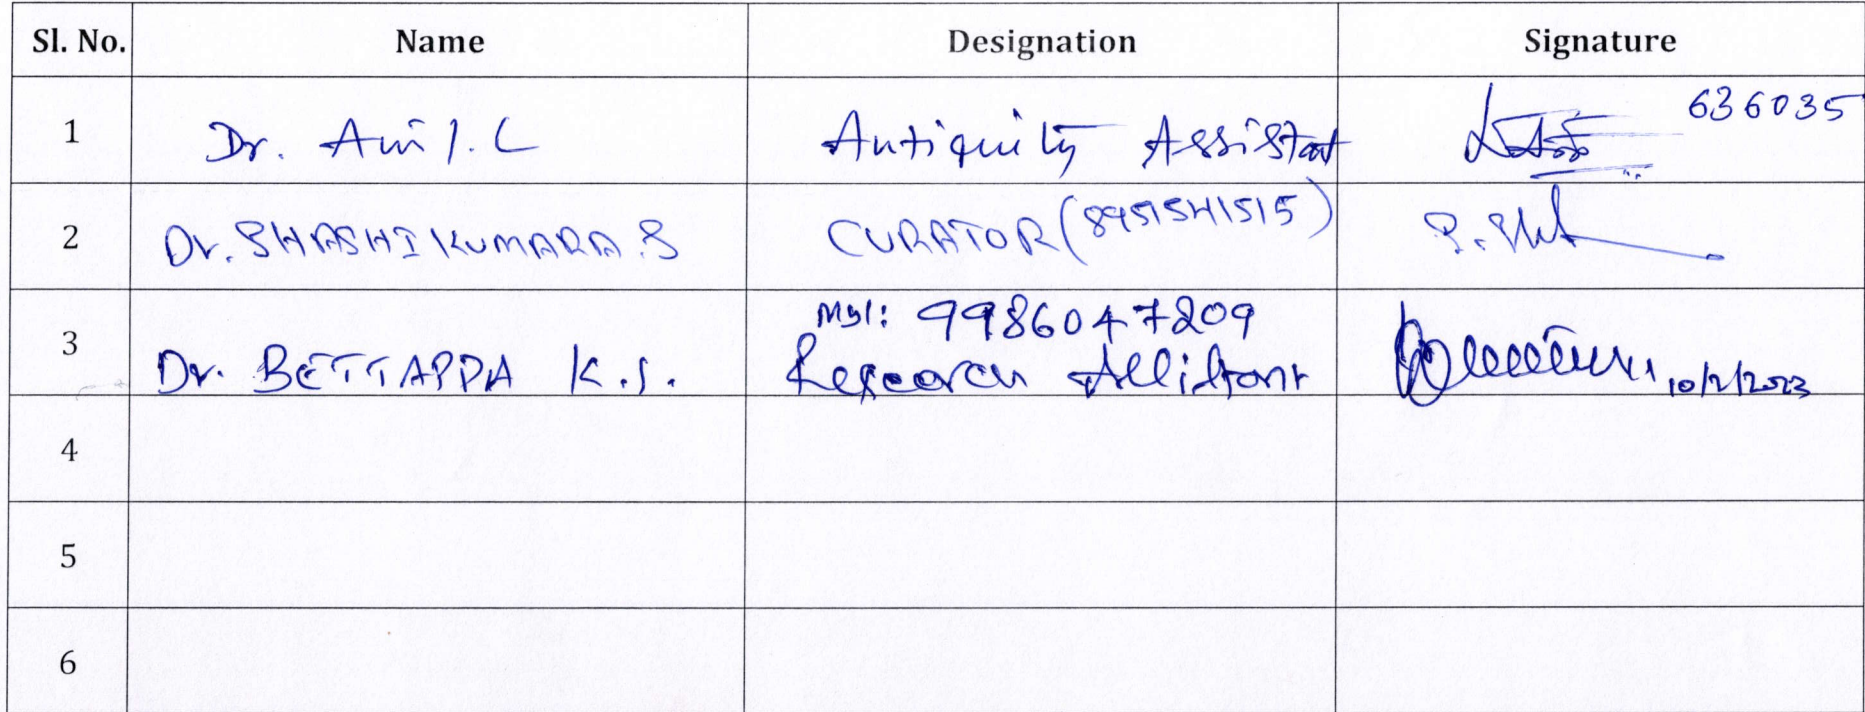 Sl. No. Name Designation Signature
1 Dr. Anil. C Antiquity Assistant 636035
2 Dr. SHASHIKUMARA. S CURATOR (8951541515)
Mgl: 9986047209
3 Dr. BETTAPPA K.S. Research Assistant 10/2/2023
4
5
6